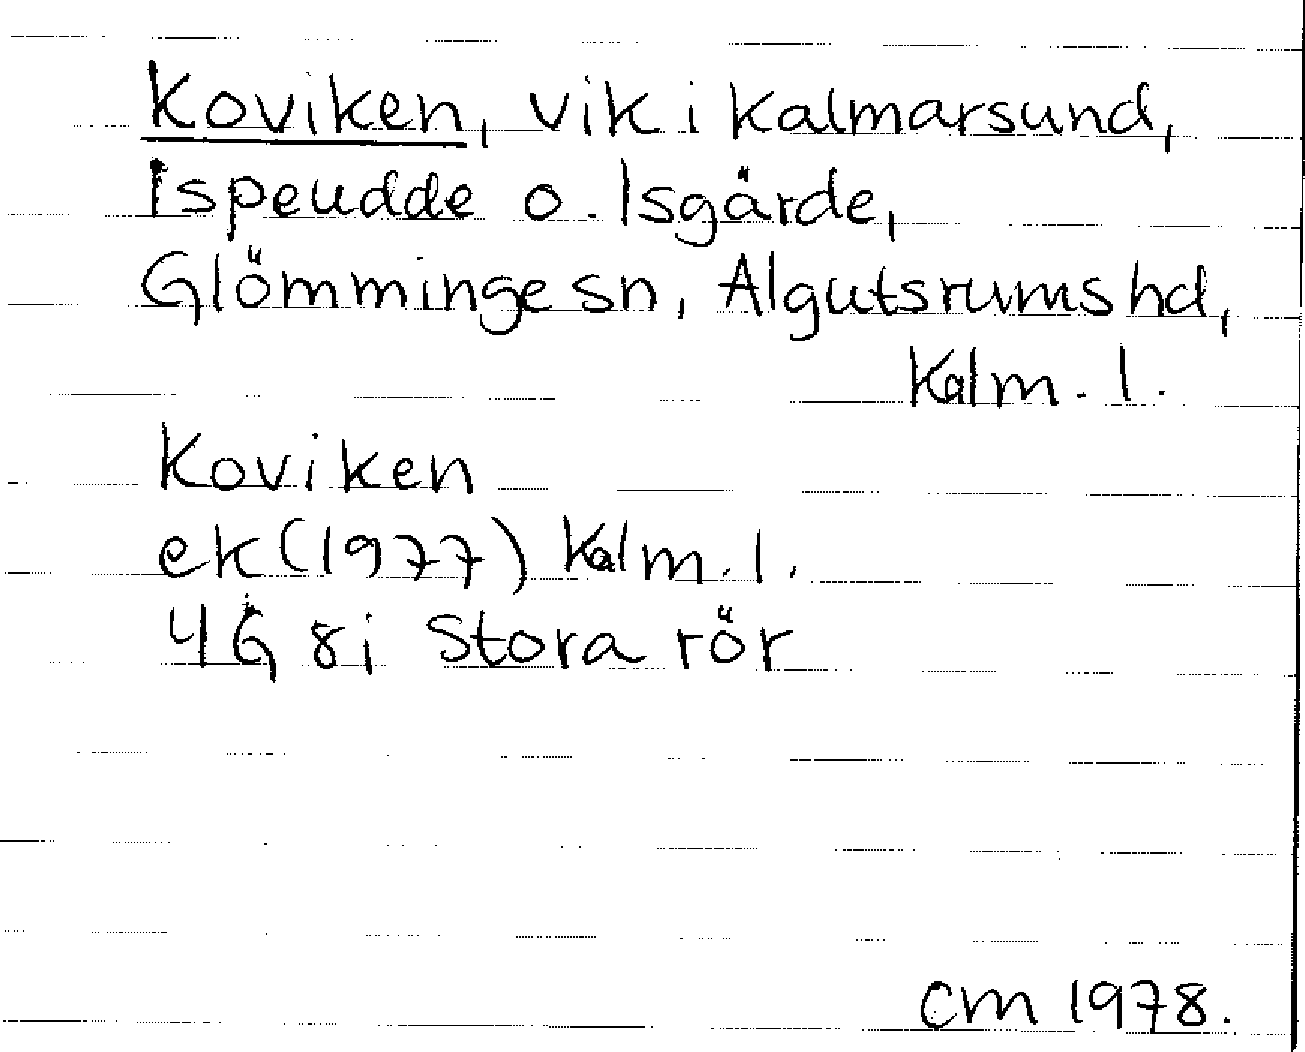 Koviken, vik i Kalmarsund,
Ispeudde o. Isgärde,
Glömminge sn, Algutsrums hd,
Kalm. l.
Koviken
ek (1977) Kalm. l.
4G 8i Stora rör
CM 1978.